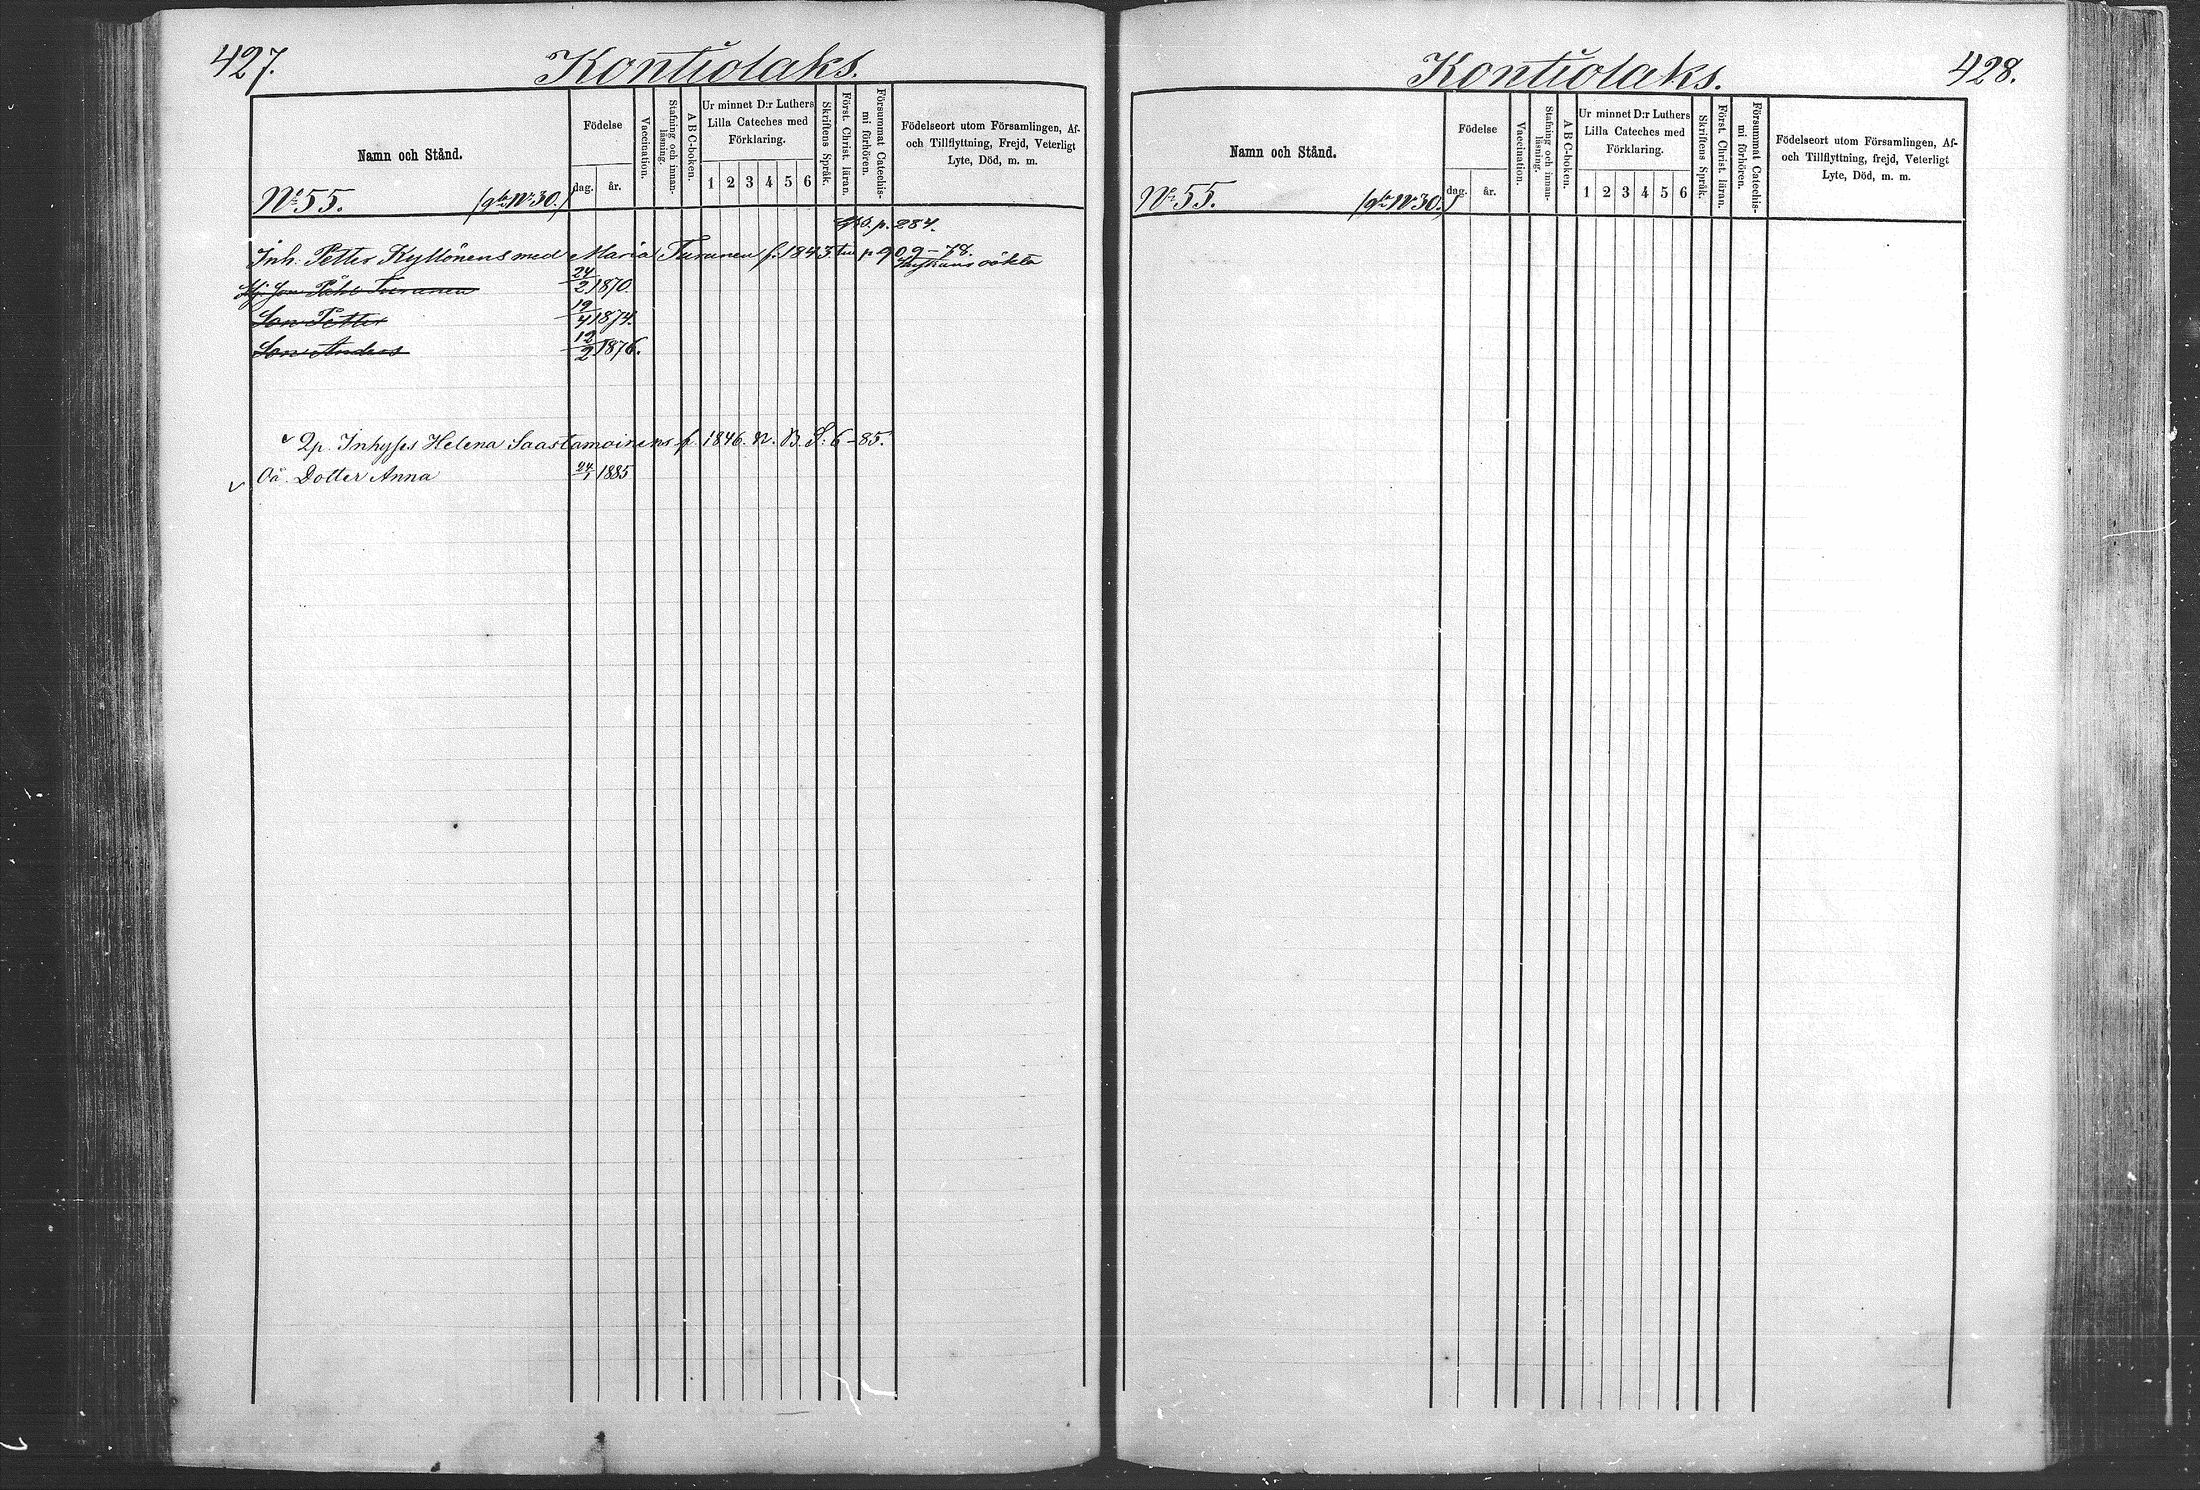 427.
Kontiolaks.
Namn och Stånd.
Födelse
dag.
år.
Vaccination.
Stafning och innan-
läsning.
A B C-boken.
Ur minnet D:r Luthers
Lilla Cateches med
Förklaring.
1 2 3 4 5 6
Skriftens Språk.
Först. Christ. läran.
Försummat Catechis-
mi förhören.
Födelseort utom Församlingen, Af-
och Tillflyttning, Frejd, Veterligt
Lyte, Död, m. m.
No 55. No 30.
p. 284.
Inh. Petter Kyllönens med Maria Turunen f. 1843 p 909-78.
Son Påhl Turunen 24/2 1870.
Son Petter 19/4 1874.
Son Anders 12/2 1876.
Inhyses Helena Saastamoinens f. 1846. N. B. S: 6-85.
Oä. Dotter Anna 24/1 1885
428.
Kontiolaks.
Namn och Stånd.
Födelse
dag.
år.
Vaccination.
Stafning och innan-
läsning.
A B C-boken.
Ur minnet D:r Luthers
Lilla Cateches med
Förklaring.
1 2 3 4 5 6
Skriftens Språk.
Först. Christ. läran.
Försummat Catechis-
mi förhören.
Födelseort utom Församlingen, Af-
och Tillflyttning, frejd, Veterligt
Lyte, Död, m. m.
No 55. No 30.